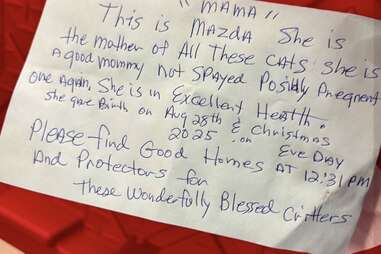 "MAMA"
This is MAZDA She is
the mother of All These CATS. She is
A good mommy not SPAYED Possibly Pregnent
One Again. She is in Excellent Health.
She gave Birth on Aug 28th & Christmas
2025 . on Eve DAY
Please find Good Homes AT 12:31 PM
And Protectors for
these Wonderfully Blessed Critters